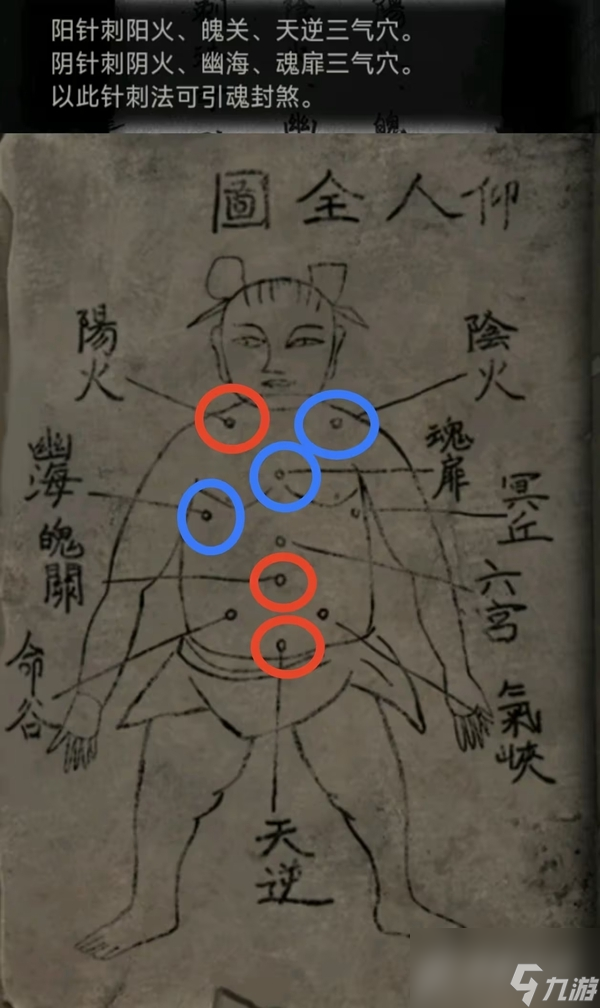 阳针刺阳火、魄关、天逆三气穴。
阴针刺阴火、幽海、魂扉三气穴。
以此针刺法可引魂封煞。
圖全人仰
陽火
陰火
魂扉
幽海
冥丘
魄關
六宮
命谷
氣峽
天逆
九游